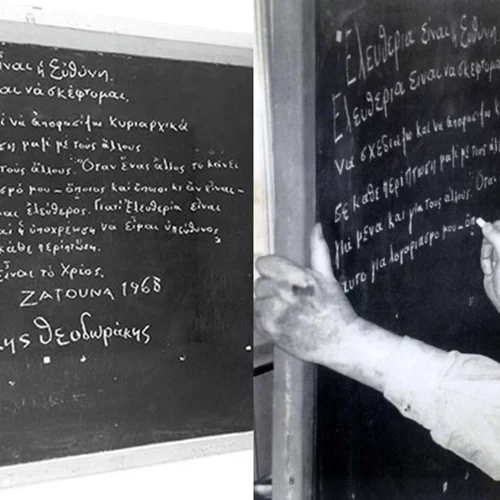 ίναι ἡ Εὐθύνη.
αι νὰ σκέφτομαι,
νὰ ἀποφασίζω κυριαρχικὰ
ση μαζὶ μὲ τοὺς ἄλλους
τοὺς ἄλλους. Ὅταν ἕνας ἄλλος τὸ κάνει
σμό μου – ὅποιος καὶ ὅπου κι ἂν εἶναι –
μαι ἐλεύθερος. Γιατὶ Ἐλευθερία εἶναι
αὶ ἡ ὑποχρέωση νὰ εἶμαι ὑπεύθυνος
κάθε περίπτωση.
εἶναι τὸ Χρέος.
ΖΑΤΟΥΝΑ 1968
ης Θεοδωράκης
Ἐλευθερία εἶναι ἡ Εὐθύνη
Ἐλευθερία εἶναι νὰ σκέφτομαι
νὰ σχεδιάζω καὶ νὰ ἀποφασίζω
σὲ κάθε περίπτωση μαζὶ μὲ τοὺς
γιὰ μένα καὶ γιὰ τοὺς ἄλλους. Ὅταν
αὐτὸ γιὰ λογαριασμό μου – ὅπ
8